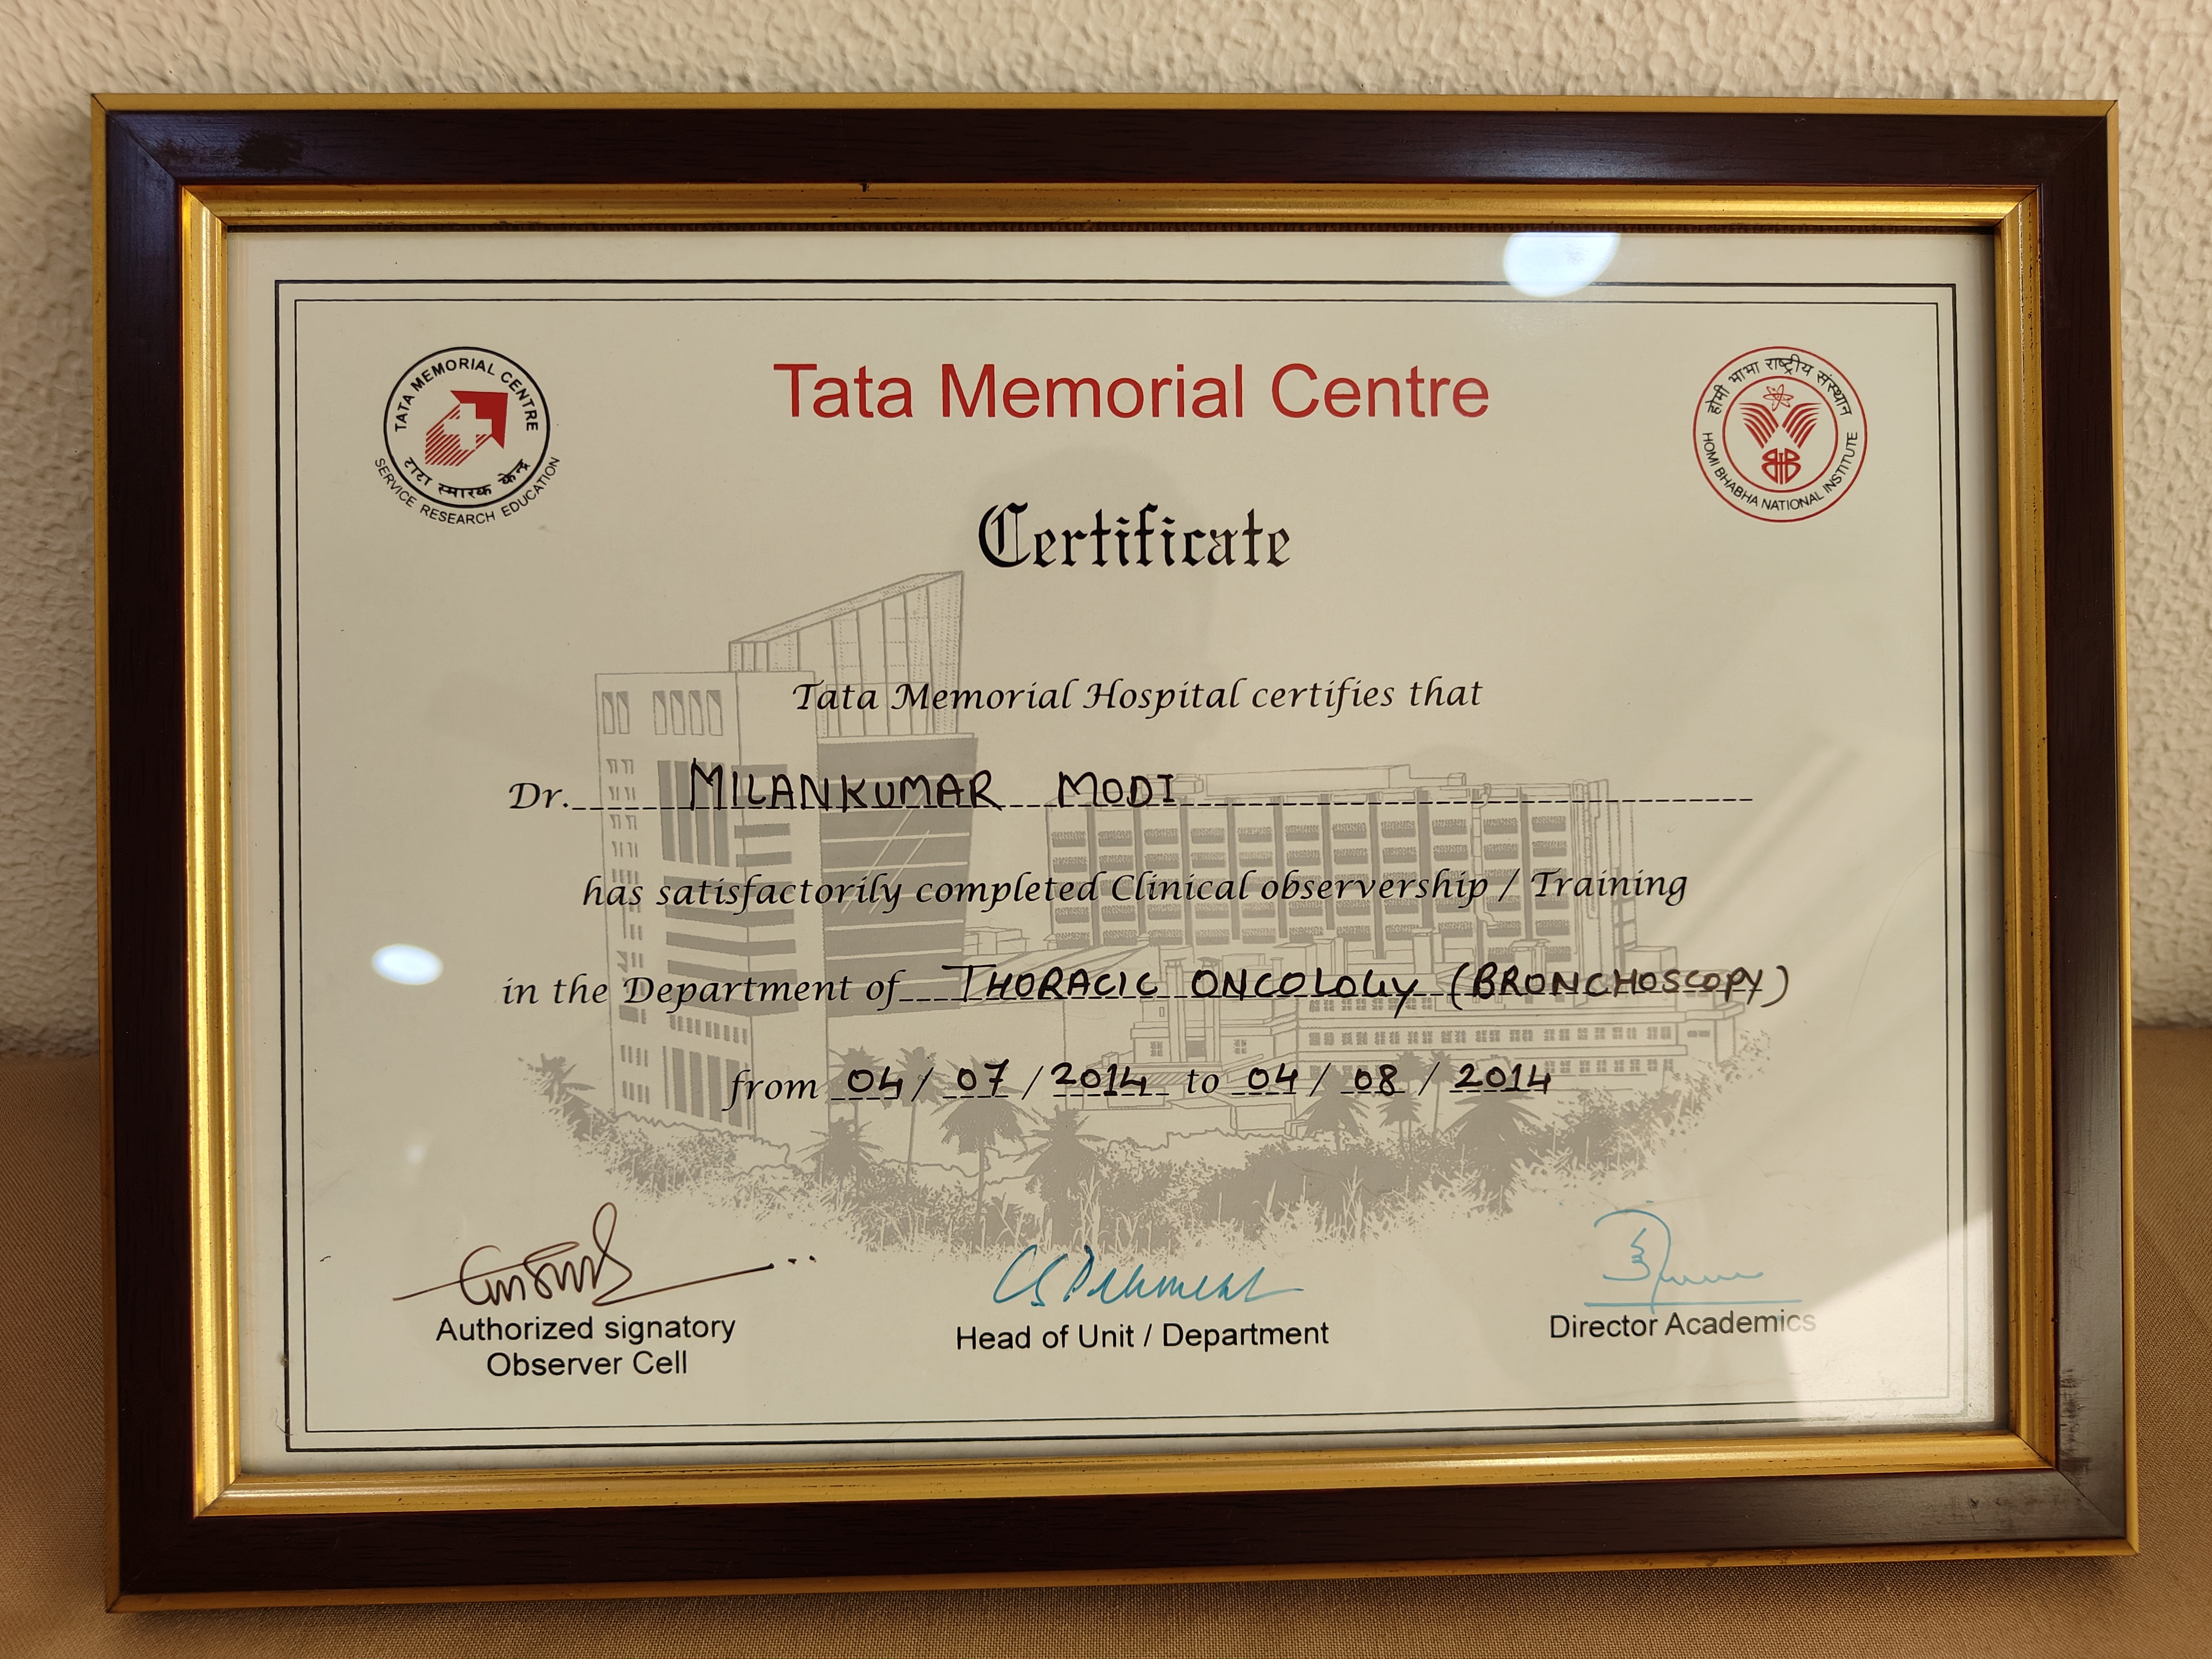 TATA MEMORIAL CENTRE
टाटा स्मारक केन्द्र
SERVICE RESEARCH EDUCATION
Tata Memorial Centre
होमी भाभा राष्ट्रीय संस्थान
HOMI BHABHA NATIONAL INSTITUTE
Certificate
Tata Memorial Hospital certifies that
Dr. MILANKUMAR MODI
has satisfactorily completed Clinical observership / Training
in the Department of THORACIC ONCOLOGY (BRONCHOSCOPY)
from 04/ 07 / 2014 to 04/ 08 / 2014
Authorized signatory
Observer Cell
Head of Unit / Department
Director Academics